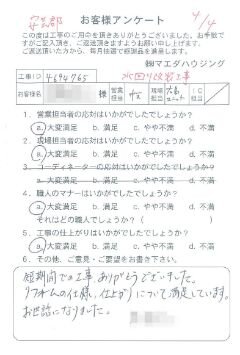 安芸郡
お客様アンケート
4/4
この度は工事のご用命を頂きありがとうございました。お手数で
すがご記入頂き、ご返送頂きますようお願い申し上げます。
ご返送頂いた方から、毎月抽選で感謝品を進呈します。
㈱マエダハウジング
工事ID 4694765 水回り改装工事
お客様名 営業担当 現場担当 IC担当
1. 営業担当者の応対はいかがでしたでしょうか?
a.大変満足 b.満足 c.やや不満 d.不満
2. 現場担当者の応対はいかがでしたでしょうか?
a.大変満足 b.満足 c.やや不満 d.不満
3. コーディネーターの応対はいかがでしたでしょうか?
a.大変満足 b.満足 c.やや不満 d.不満
4. 職人のマナーはいかがでしたでしょうか?
a.大変満足 b.満足 c.やや不満 d.不満
それはどの職人でしょうか? ( )
5. 工事の仕上がりはいかがでしたでしょうか?
a.大変満足 b.満足 c.やや不満 d.不満
6. その他、ご意見・ご要望をお書き下さい。
短期間での工事ありがとうございました。
リフォームの仕様、仕上がりについて満足しています。
お世話になりました。